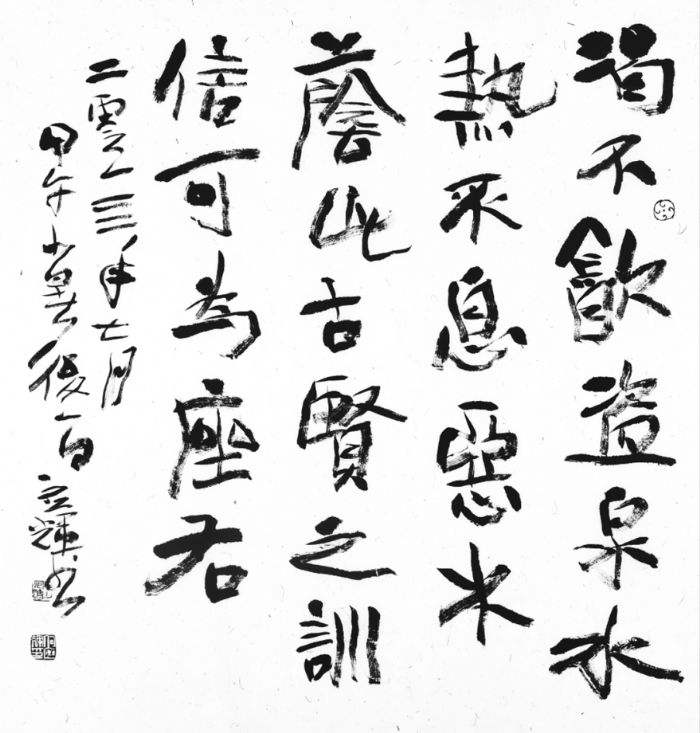 渴不飲盜泉水
熱不息惡木
蔭此古賢之訓
信可為座右
二零一三年七月
甲午小暑後一日
立輝书